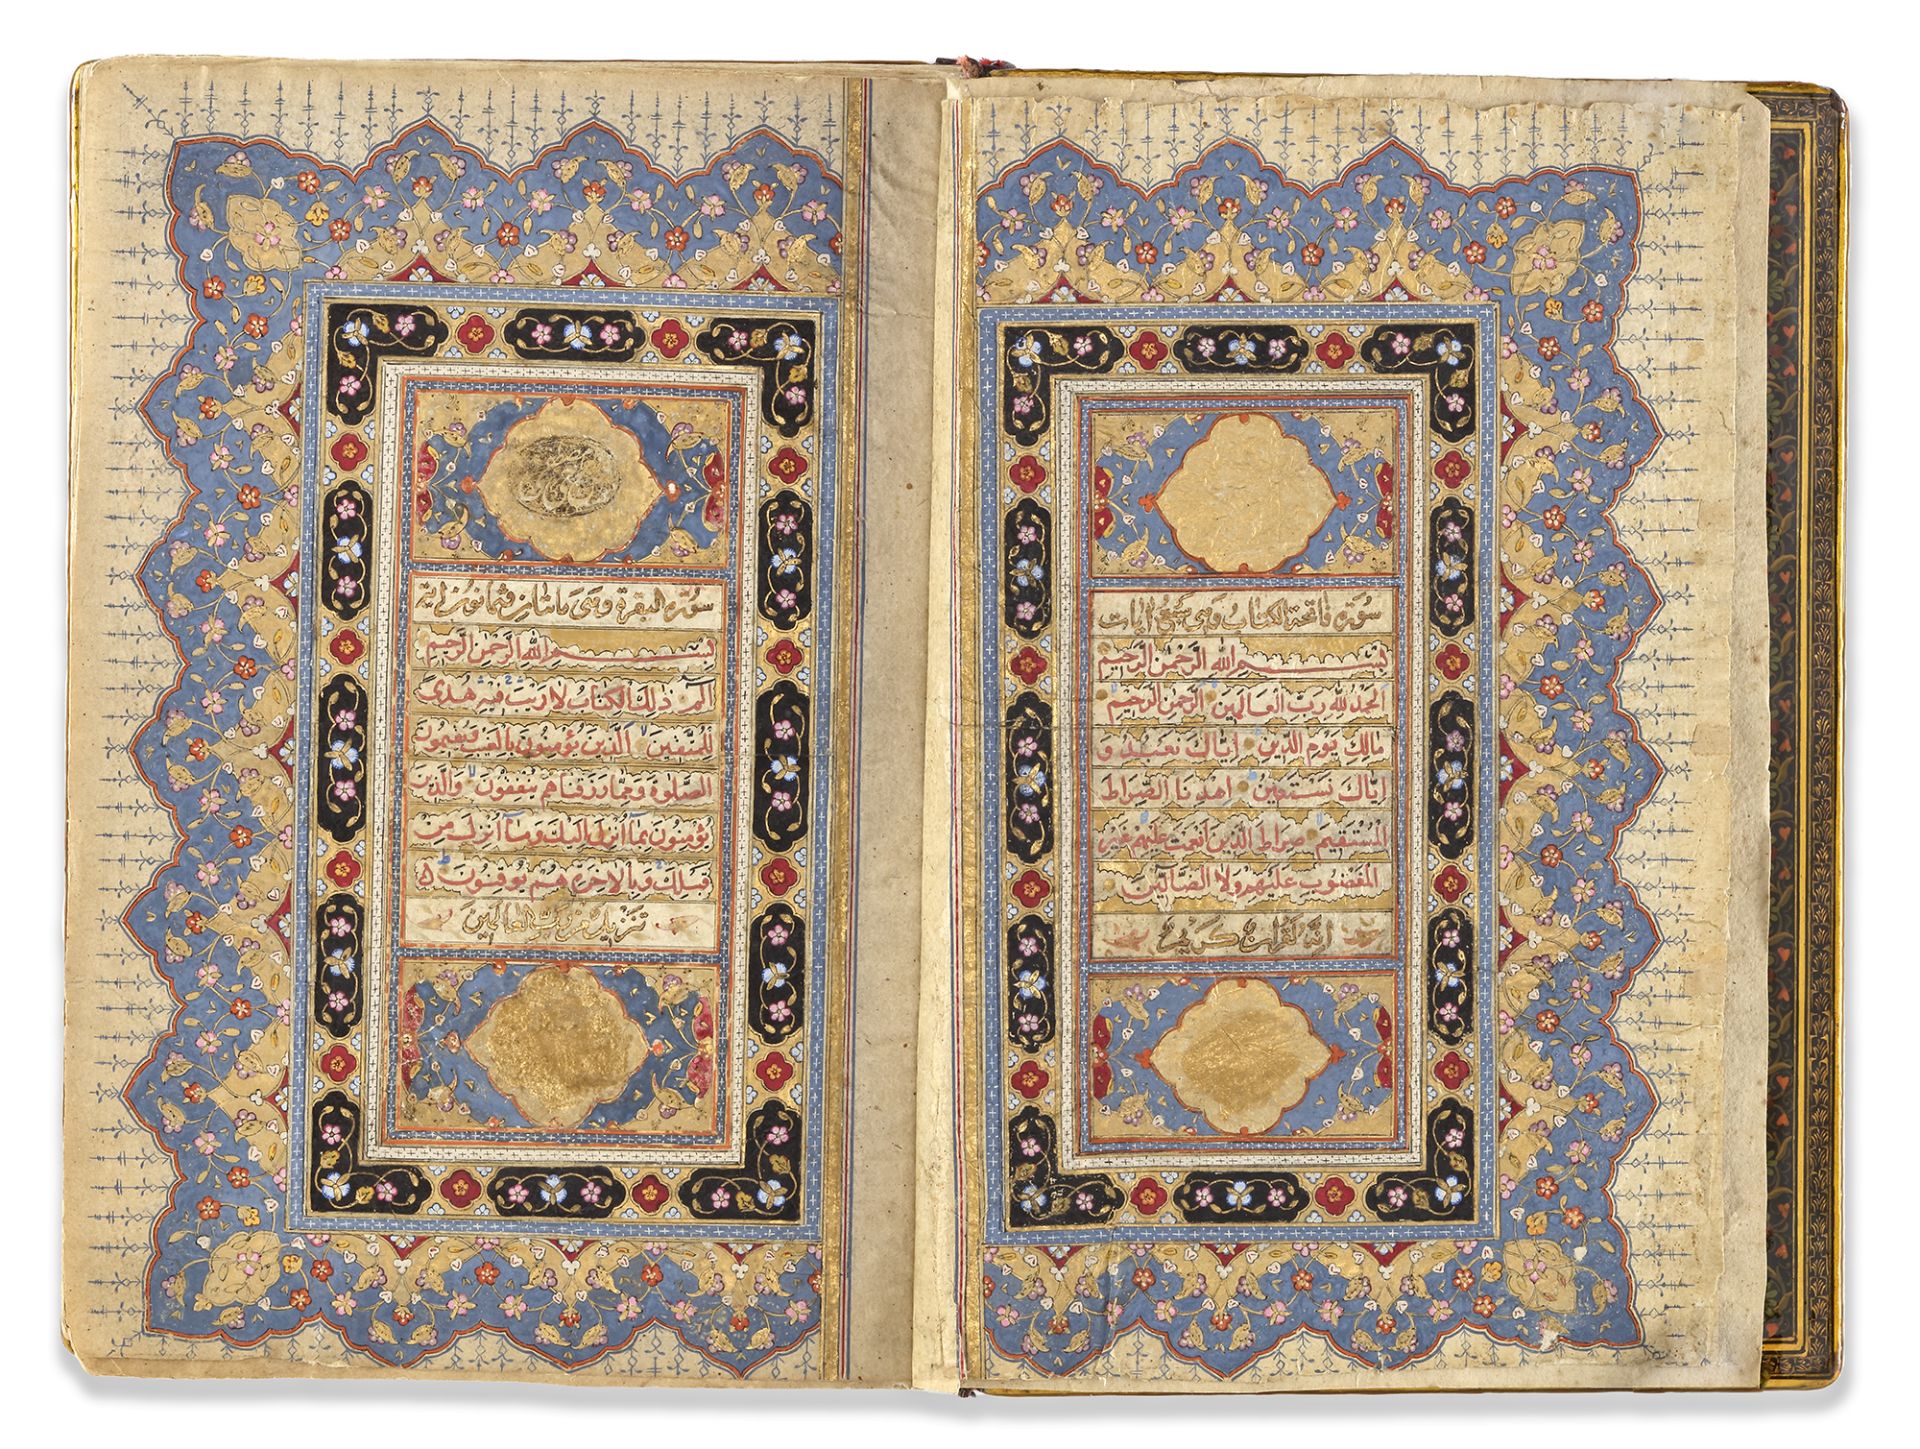 سورة فاتحة الكتاب وهى سبع ايات
بِسْمِ اللهِ الرَّحْمٰنِ الرَّحِيمِ
الحَمْدُ للهِ رَبِّ العَالَمِينَ الرَّحْمٰنِ الرَّحِيمِ
مَالِكِ يَوْمِ الدِّينِ اِيَّاكَ نَعْبُدُ وَ
اِيَّاكَ نَسْتَعِينُ اِهْدِنَا الصِّرَاطَ
المُسْتَقِيمَ صِرَاطَ الَّذِينَ اَنْعَمْتَ عَلَيْهِمْ غَيْرِ
المَغْضُوبِ عَلَيْهِمْ وَلَا الضَّالِّينَ
انه لقران كريم
سورة البقرة وهى مائتان وثمانون اية
بِسْمِ اللهِ الرَّحْمٰنِ الرَّحِيمِ
الٓمٓ ذٰلِكَ الكِتَابُ لَا رَيْبَ فِيهِ هُدًى
لِلْمُتَّقِينَ الَّذِينَ يُؤْمِنُونَ بِالغَيْبِ وَيُقِيمُونَ
الصَّلٰوةَ وَمِمَّا رَزَقْنَاهُمْ يُنْفِقُونَ وَالَّذِينَ
يُؤْمِنُونَ بِمَا اُنْزِلَ اِلَيْكَ وَمَا اُنْزِلَ مِنْ
قَبْلِكَ وَبِالاٰخِرَةِ هُمْ يُوقِنُونَ
تنزيل من رب العالمين